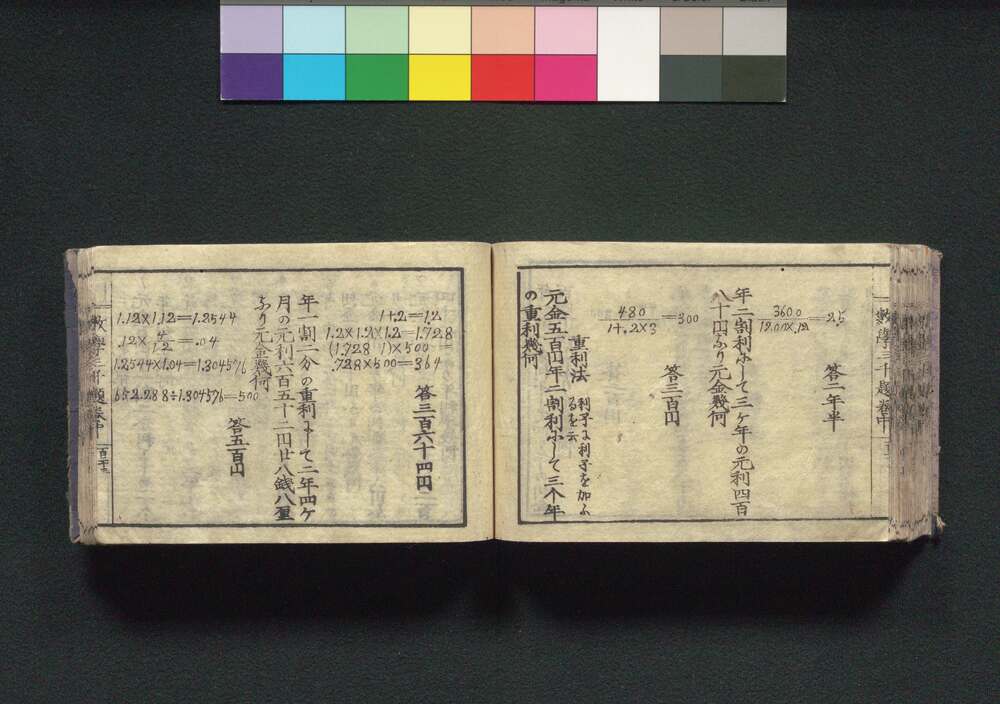 3600
12.00×.12
=2.5
答二年半
年二割利にして三ケ年の元利四百
八十円なり元金幾何
480
1+.2×3
=300
答三百円
重利法
利子に利子を加ふ
るを云
元金五百円年二割利にして三个年
の重利幾何
1+.2=1.2
1.2×1.2×1.2=1.728
(1.728-1)×500=
.728×500=364
答三百六十四円
年一割二分の重利にして二年四ケ
月の元利六百五十二円廿八銭八厘
なり元金幾何
1.12×1.12=1.2544
.12×4/12=.04
1.2544×1.04=1.304576
652.288÷1.304576=500
答五百円
數學三千題卷中